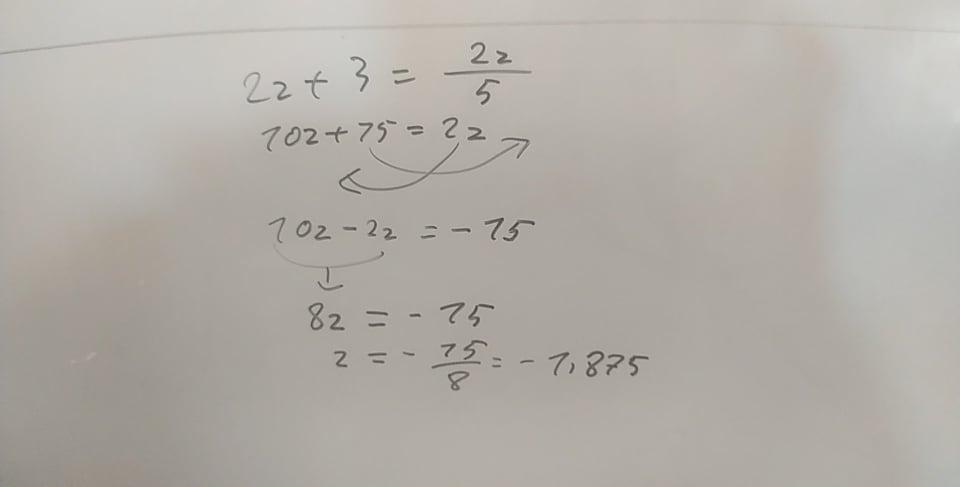 2z + 3 = 2z/5
10z + 15 = 2z
10z - 2z = - 15
8z = - 15
z = - 15/8 = - 1,875